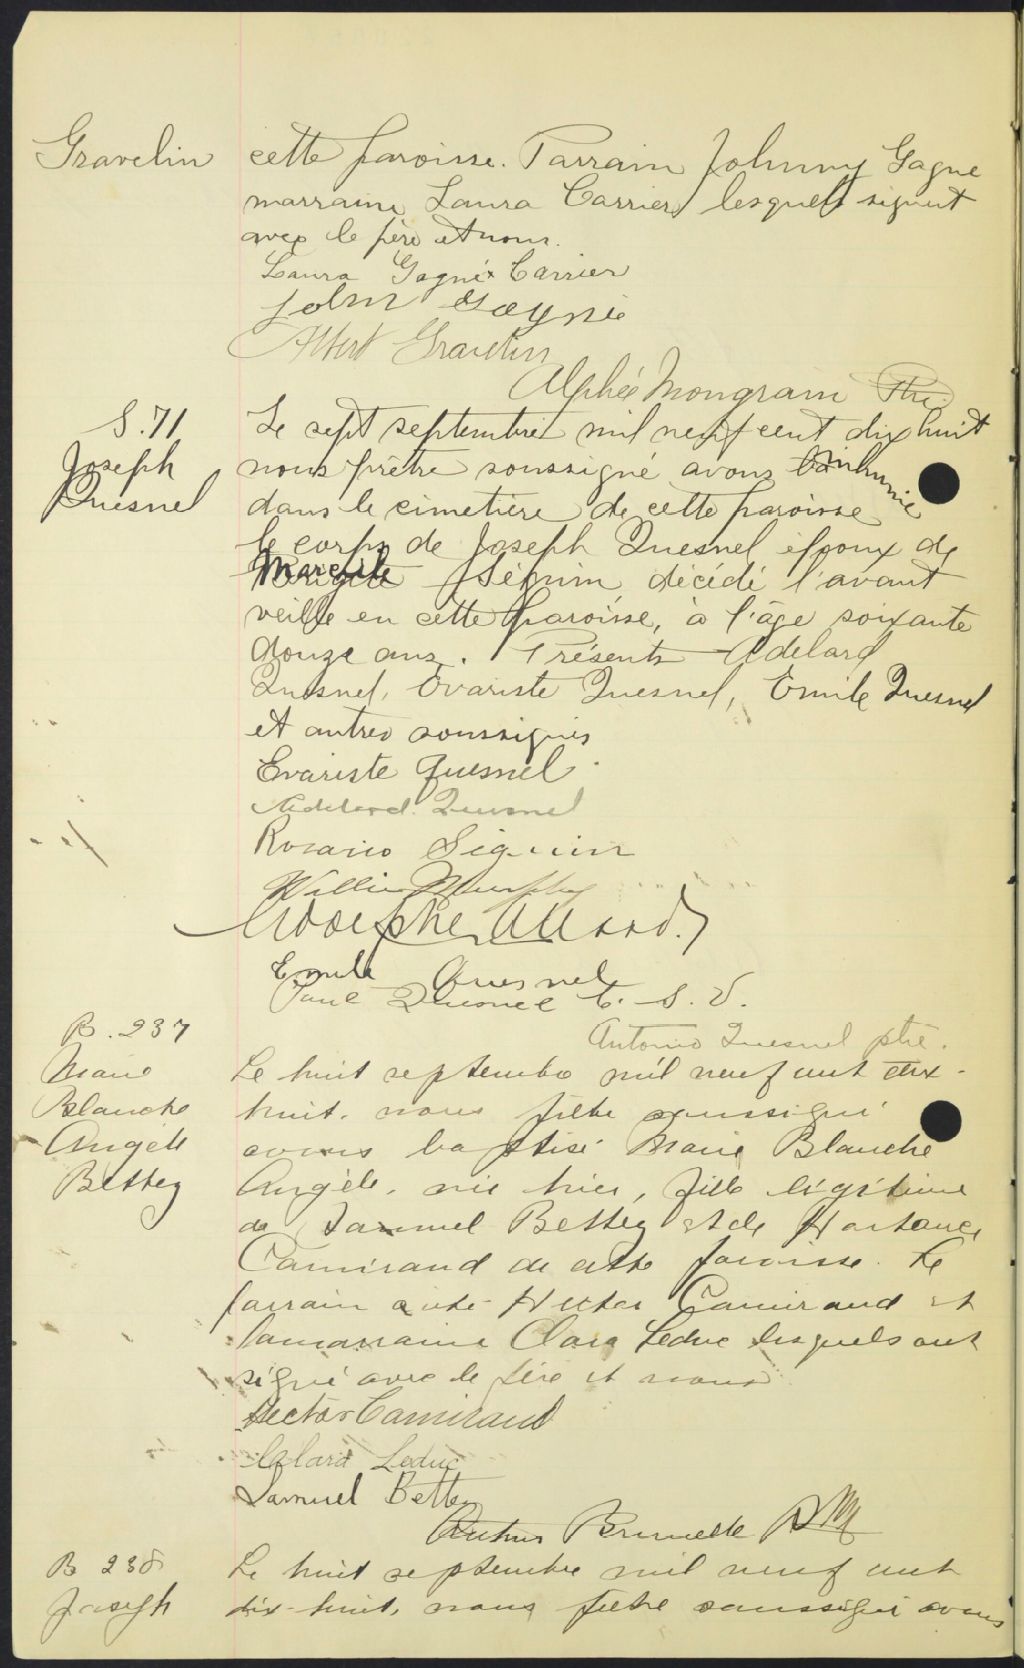 Gravelin
cette paroisse. Parrain Johnny Gagne
marraine Laura Carrier lesquels signent
avec le père et nous.
Laura Gagné Carrier
John Gagnie
Albert Gravelin
Alphée Mongrain Ptre.
S. 71
Joseph
Quesnel
Le sept septembre mil neuf cent dix huit
nous prêtre soussigné avons inhumé
dans le cimetière de cette paroisse
le corps de Joseph Quesnel époux de
Séguin décédé l'avant
veille en cette paroisse, à l'âge soixante
douze ans. Présents Adelard
Quesnel, Evariste Quesnel, Emile Quesnel
et autres soussignés
Evariste Quesnel
Adelard Quesnel
Rosario Siguin
Willie Murphy
Adolphe Allard.
Emile Quesnel
Paul Quesnel C. S. V.
Antonio Quesnel ptre.
B. 237
Marie
Blanche
Angèle
Bettey
Le huit septembre mil neuf cent dix-
huit, nous prêtre soussigné
avons baptisé Marie Blanche
Angèle, née hier, fille légitime
de Samuel Bettey et de Hortance
Camirand de cette paroisse. Le
parrain a été Hector Camirand et
la marraine Clara Leduc lesquels ont
signé avec le père et nous
Hector Camirand
Clara Leduc
Samuel Bettey
Brunelle
B 238
Joseph
Le huit septembre mil neuf cent
dix-huit, nous prêtre soussigné avons